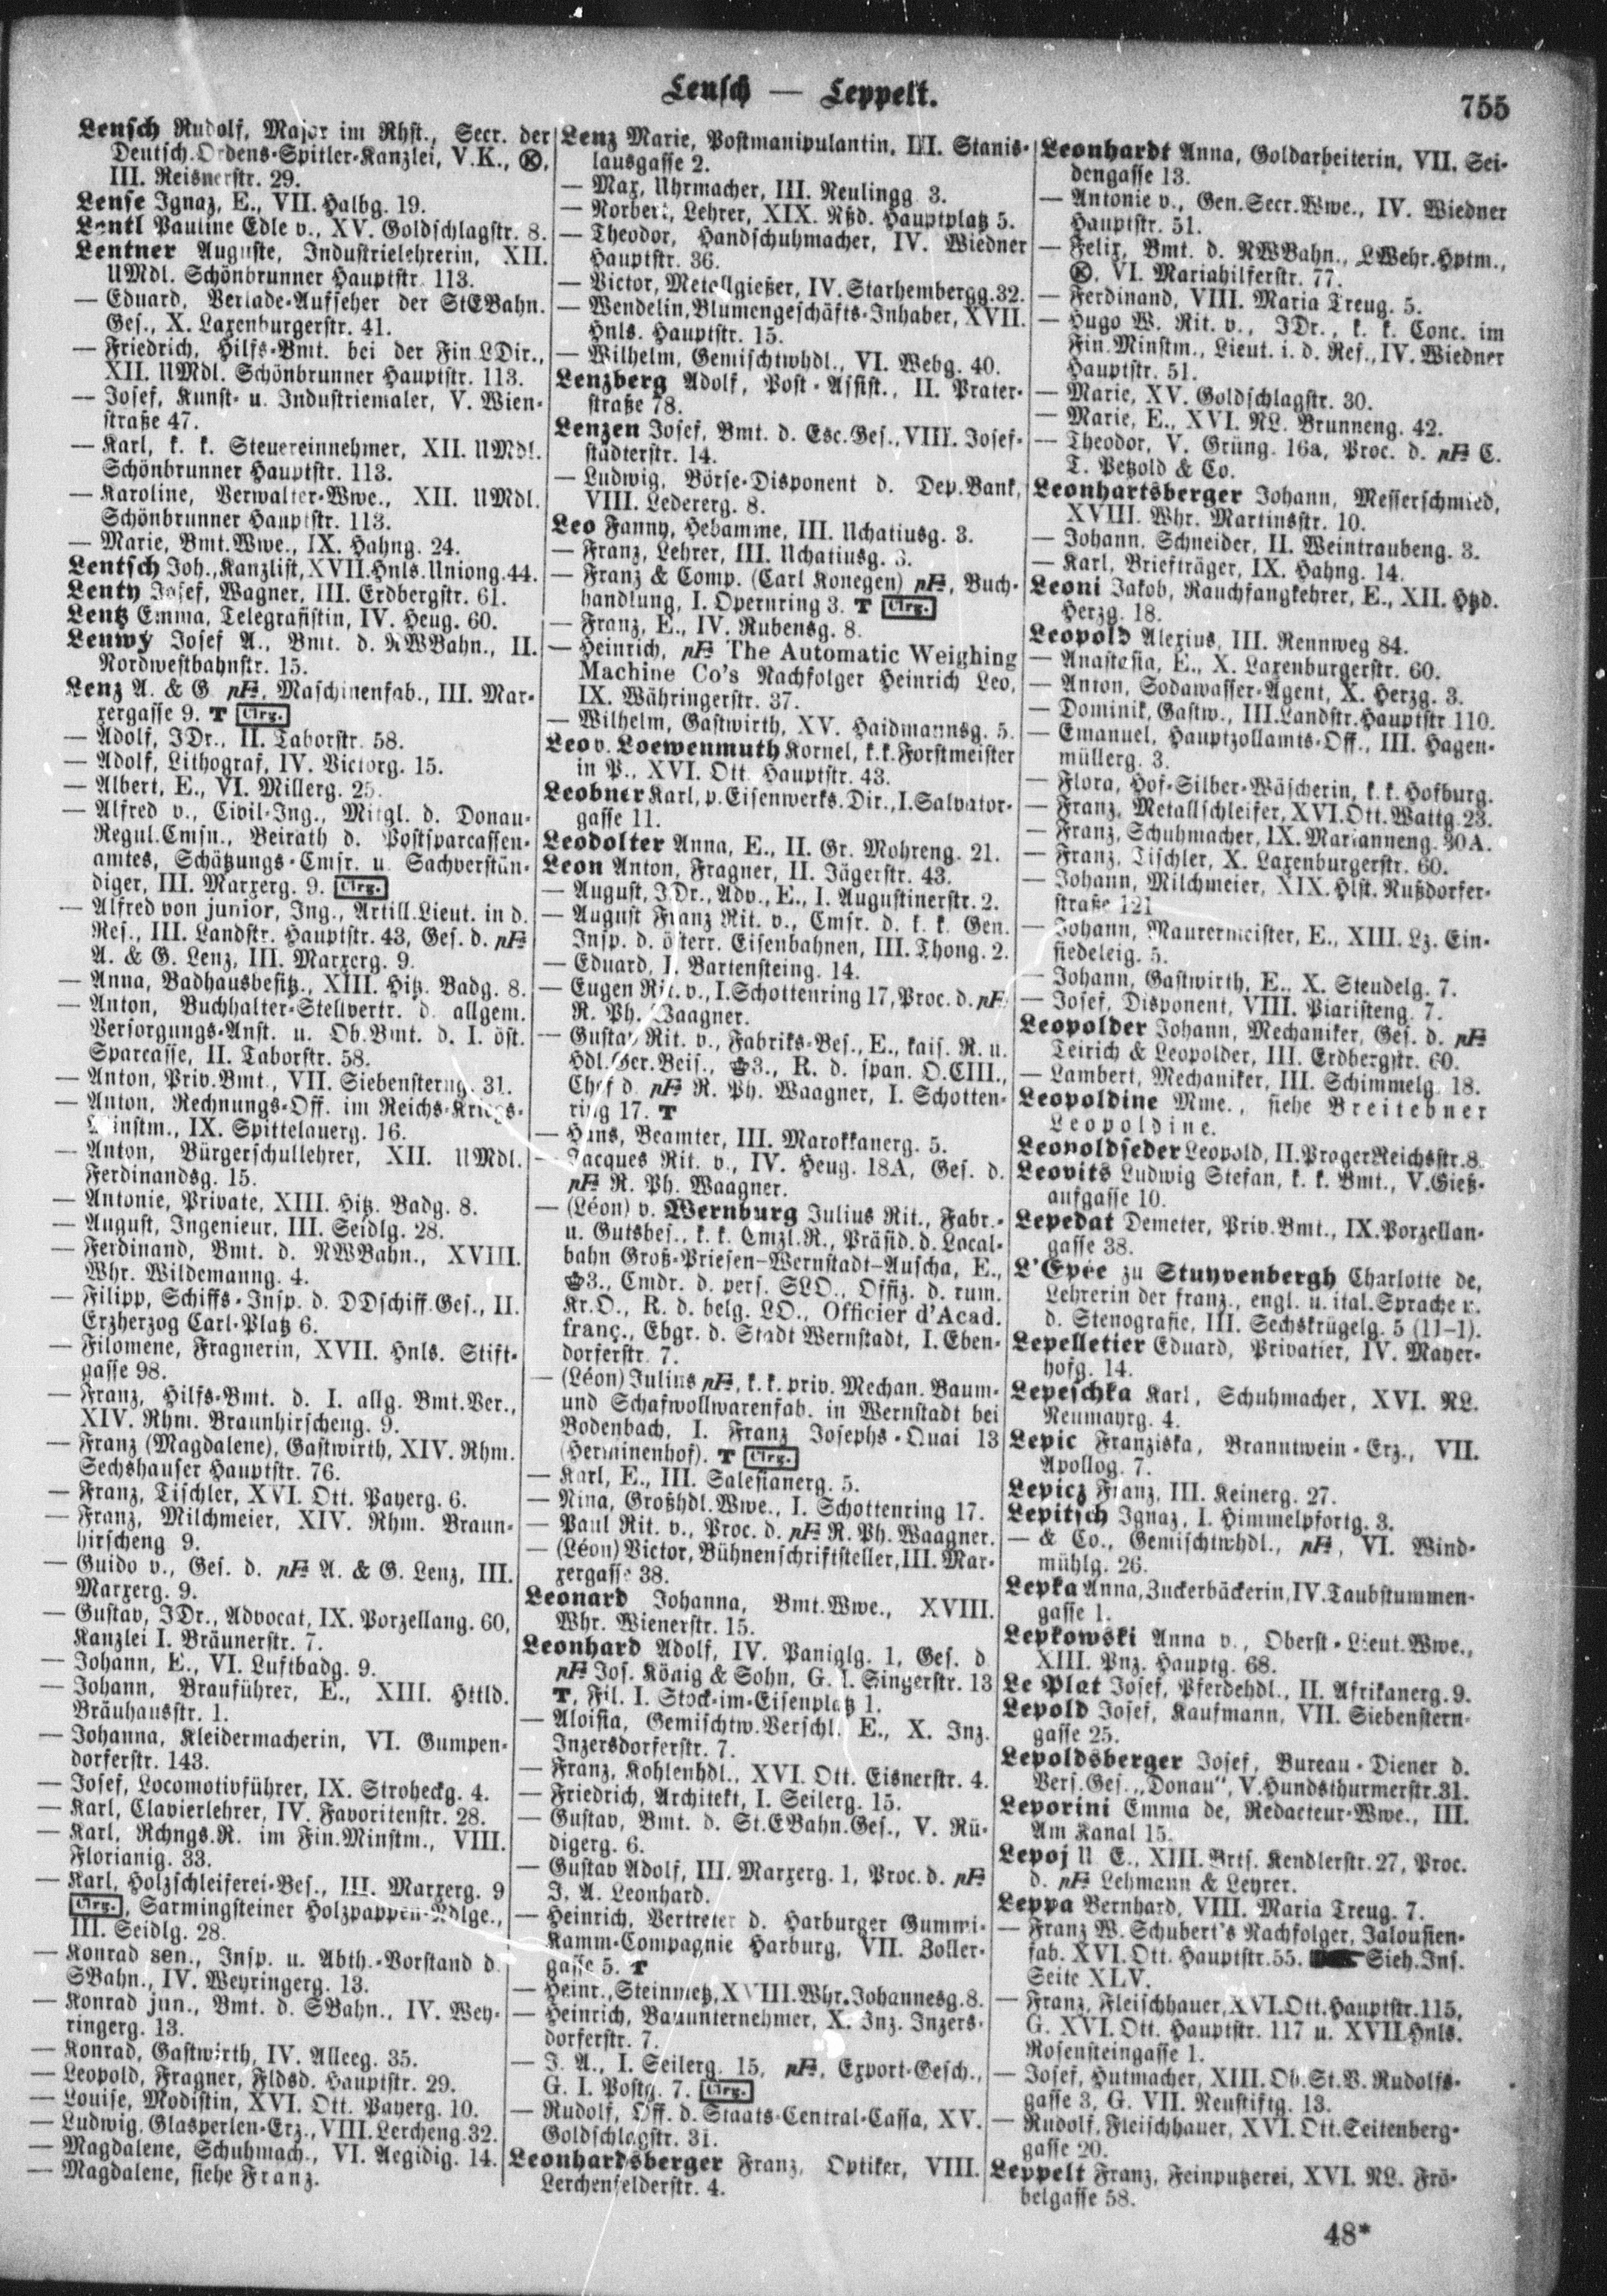 Lensch — Leppelt.
755
Lensch Rudolf, Major im Rhst., Secr. der
Deutsch.Ordens-Spitler-Kanzlei, V.K., Ⓚ,
III. Reisnerstr. 29.
Lense Ignaz, E., VII. Halbg. 19.
Lentl Pauline Edle v., XV. Goldschlagstr. 8.
Lentner Auguste, Industrielehrerin, XII.
UMdl. Schönbrunner Hauptstr. 113.
— Eduard, Verlade-Aufseher der StEBahn.
Ges., X. Laxenburgerstr. 41.
— Friedrich, Hilfs-Bmt. bei der Fin.LDir.,
XII. UMdl. Schönbrunner Hauptstr. 113.
— Josef, Kunst- u. Industriemaler, V. Wien-
straße 47.
— Karl, k. k. Steuereinnehmer, XII. UMdl.
Schönbrunner Hauptstr. 113.
— Karoline, Verwalter-Wwe., XII. UMdl.
Schönbrunner Hauptstr. 113.
— Marie, Bmt.Wwe., IX. Hahng. 24.
Lentsch Joh., Kanzlist, XVII.Hnls.Uniong.44.
Lenty Josef, Wagner, III. Erdbergstr. 61.
Lentz Emma, Telegrafistin, IV. Heug. 60.
Lenwy Josef A., Bmt. d. NWBahn., II.
Nordwestbahnstr. 15.
Lenz A. & G. pF, Maschinenfab., III. Mar-
xergasse 9. T Clrg.
— Adolf, JDr., II. Taborstr. 58.
— Adolf, Lithograf, IV. Victorg. 15.
— Albert, E., VI. Millerg. 25.
— Alfred v., Civil-Ing., Mitgl. d. Donau-
Regul.Cmsn., Beirath d. Postsparcassen-
amtes, Schätzungs-Cmsr. u. Sachverstän-
diger, III. Marxerg. 9. Clrg.
— Alfred von junior, Ing., Artill.Lieut. in d.
Res., III. Landstr. Hauptstr. 43, Ges. d. pF
A. & G. Lenz, III. Marxerg. 9.
— Anna, Badhausbesitz., XIII. Hitz. Badg. 8.
— Anton, Buchhalter-Stellvertr. d. allgem.
Versorgungs-Anst. u. Ob.Bmt. d. I. öst.
Sparcasse, II. Taborstr. 58.
— Anton, Priv.Bmt., VII. Siebensterng. 31.
— Anton, Rechnungs-Off. im Reichs-Kriegs-
Minstm., IX. Spittelauerg. 16.
— Anton, Bürgerschullehrer, XII. UMdl.
Ferdinandsg. 15.
— Antonie, Private, XIII. Hitz. Badg. 8.
— August, Ingenieur, III. Seidlg. 28.
— Ferdinand, Bmt. d. NWBahn., XVIII.
Whr. Wildemanng. 4.
— Filipp, Schiffs-Insp. d. DDschiff.Ges., II.
Erzherzog Carl-Platz 6.
— Filomene, Fragnerin, XVII. Hnls. Stift-
gasse 98.
— Franz, Hilfs-Bmt. d. I. allg. Bmt.Ver.,
XIV. Rhm. Braunhirscheng. 9.
— Franz (Magdalene), Gastwirth, XIV. Rhm.
Sechshauser Hauptstr. 76.
— Franz, Tischler, XVI. Ott. Payerg. 6.
— Franz, Milchmeier, XIV. Rhm. Braun-
hirscheng 9.
— Guido v., Ges. d. pF A. & G. Lenz, III.
Marxerg. 9.
— Gustav, JDr., Advocat, IX. Porzellang. 60,
Kanzlei I. Bräunerstr. 7.
— Johann, E., VI. Luftbadg. 9.
— Johann, Brauführer, E., XIII. Httld.
Bräuhausstr. 1.
— Johanna, Kleidermacherin, VI. Gumpen-
dorferstr. 143.
— Josef, Locomotivführer, IX. Stroheckg. 4.
— Karl, Clavierlehrer, IV. Favoritenstr. 28.
— Karl, Rchngs.R. im Fin.Minstm., VIII.
Florianig. 33.
— Karl, Holzschleiferei-Bes., III. Marxerg. 9
Clrg., Sarmingsteiner Holzpappen-Ndlge.,
III. Seidlg. 28.
— Konrad sen., Insp. u. Abth.-Vorstand d.
SBahn., IV. Weyringerg. 13.
— Konrad jun., Bmt. d. SBahn., IV. Wey-
ringerg. 13.
— Konrad, Gastwirth, IV. Alleeg. 35.
— Leopold, Fragner, Fldsd. Hauptstr. 29.
— Louise, Modistin, XVI. Ott. Payerg. 10.
— Ludwig, Glasperlen-Erz., VIII.Lercheng.32.
— Magdalene, Schuhmach., VI. Aegidig. 14.
— Magdalene, siehe Franz.
Lenz Marie, Postmanipulantin, III. Stanis-
lausgasse 2.
— Max, Uhrmacher, III. Neulingg. 3.
— Norbert, Lehrer, XIX. Nßd. Hauptplatz 5.
— Theodor, Handschuhmacher, IV. Wiedner
Hauptstr. 36.
— Victor, Metallgießer, IV. Starhembergg.32.
— Wendelin, Blumengeschäfts-Inhaber, XVII.
Hnls. Hauptstr. 15.
— Wilhelm, Gemischtwhdl., VI. Webg. 40.
Lenzberg Adolf, Post-Assist., II. Prater-
straße 78.
Lenzen Josef, Bmt. d. Esc.Ges., VIII. Josef-
städterstr. 14.
— Ludwig, Börse-Disponent d. Dep.Bank,
VIII. Ledererg. 8.
Leo Fanny, Hebamme, III. Uchatiusg. 3.
— Franz, Lehrer, III. Uchatiusg. 3.
— Franz & Comp. (Carl Konegen) pF, Buch-
handlung, I. Opernring 3. T Clrg.
— Franz, E., IV. Rubensg. 8.
— Heinrich, pF The Automatic Weighing
Machine Co's Nachfolger Heinrich Leo,
IX. Währingerstr. 37.
— Wilhelm, Gastwirth, XV. Haidmannsg. 5.
Leo v. Loewenmuth Kornel, k.k.Forstmeister
in P., XVI. Ott. Hauptstr. 43.
Leobner Karl, p.Eisenwerks.Dir., I.Salvator-
gasse 11.
Leodolter Anna, E., II. Gr. Mohreng. 21.
Leon Anton, Fragner, II. Jägerstr. 43.
— August, J.Dr., Adv., E., I. Augustinerstr. 2.
— August Franz Rit. v., Cmsr. d. k. k. Gen.
Insp. d. österr. Eisenbahnen, III. Thong. 2.
— Eduard, I. Bartensteing. 14.
— Eugen Rit. v., I.Schottenring 17, Proc. d. pF
R. Ph. Waagner.
— Gustav Rit. v., Fabriks-Bes., E., kais. R. u.
Hdl.Ger.Beis., ♚3., R. d. span. O.CIII.,
Chef d. pF R. Ph. Waagner, I. Schotten-
ring 17. T
— Hans, Beamter, III. Marokkanerg. 5.
— Jacques Rit. v., IV. Heug. 18A, Ges. d.
pF R. Ph. Waagner.
— (Léon) v. Wernburg Julius Rit., Fabr.-
u. Gutsbes., k. k. Cmzl.R., Präsid. d. Local-
bahn Groß-Priesen–Wernstadt–Auscha, E.,
♚3., Cmdr. d. pers. SLO., Offiz. d. rum.
Kr.O., R. d. belg. LO., Officier d'Acad.
franç., Ebgr. d. Stadt Wernstadt, I. Eben-
dorferstr. 7.
— (Léon) Julius pF, k. k. priv. Mechan. Baum-
und Schafwollwarenfab. in Wernstadt bei
Bodenbach, I. Franz Josephs-Quai 13
(Herminenhof). T Clrg.
— Karl, E., III. Salesianerg. 5.
— Nina, Großhdl.Wwe., I. Schottenring 17.
— Paul Rit. v., Proc. d. pF R. Ph. Waagner.
— (Léon) Victor, Bühnenschriftsteller, III. Mar-
xergasse 38.
Leonard Johanna, Bmt.Wwe., XVIII.
Whr. Wienerstr. 15.
Leonhard Adolf, IV. Paniglg. 1, Ges. d.
pF Jos. König & Sohn, G. I. Singerstr. 13
T, Fil. I. Stock-im-Eisenplatz 1.
— Aloisia, Gemischtw.Verschl. E., X. Inz.
Inzersdorferstr. 7.
— Franz, Kohlenhdl., XVI. Ott. Eisnerstr. 4.
— Friedrich, Architekt, I. Seilerg. 15.
— Gustav, Bmt. d. St.EBahn.Ges., V. Rü-
digerg. 6.
— Gustav Adolf, III. Marxerg. 1, Proc. d. pF
J. A. Leonhard.
— Heinrich, Vertreter d. Harburger Gummi-
Kamm-Compagnie Harburg, VII. Zoller-
gasse 5. T
— Heinr., Steinmetz, XVIII.Whr.Johannesg.8.
— Heinrich, Bauunternehmer, X. Inz. Inzers-
dorferstr. 7.
— J. A., I. Seilerg. 15, pF, Export-Gesch.,
G. I. Postg. 7. Clrg.
— Rudolf, Off. d. Staats-Central-Cassa, XV.
Goldschlagstr. 31.
Leonhardsberger Franz, Optiker, VIII.
Lerchenfelderstr. 4.
Leonhardt Anna, Goldarbeiterin, VII. Sei-
dengasse 13.
— Antonie v., Gen.Secr.Wwe., IV. Wiedner
Hauptstr. 51.
— Felix, Bmt. d. NWBahn., LWehr.Hptm.,
Ⓚ. VI. Mariahilferstr. 77.
— Ferdinand, VIII. Maria Treug. 5.
— Hugo W. Rit. v., JDr., k. k. Conc. im
Fin.Minstm., Lieut. i. d. Res., IV. Wiedner
Hauptstr. 51.
— Marie, XV. Goldschlagstr. 30.
— Marie, E., XVI. NL. Brunneng. 42.
— Theodor, V. Grüng. 16a, Proc. d. pF C.
T. Petzold & Co.
Leonhartsberger Johann, Messerschmied,
XVIII. Whr. Martinsstr. 10.
— Johann, Schneider, II. Weintraubeng. 3.
— Karl, Briefträger, IX. Hahng. 14.
Leoni Jakob, Rauchfangkehrer, E., XII. Htzd.
Herzg. 18.
Leopold Alexius, III. Rennweg 84.
— Anastasia, E., X. Laxenburgerstr. 60.
— Anton, Sodawasser-Agent, X. Herzg. 3.
— Dominik, Gastw., III.Landstr.Hauptstr 110.
— Emanuel, Hauptzollamts-Off., III. Hagen-
müllerg. 3.
— Flora, Hof-Silber-Wäscherin, k. k. Hofburg.
— Franz, Metallschleifer, XVI.Ott.Wattg.23.
— Franz, Schuhmacher, IX. Marianneng. 30A.
— Franz, Tischler, X. Laxenburgerstr. 60.
— Johann, Milchmeier, XIX. Hlst. Nußdorfer-
straße 121
— Johann, Maurermeister, E., XIII. Lz. Ein-
siedeleig. 5.
— Johann, Gastwirth, E., X. Steudelg. 7.
— Josef, Disponent, VIII. Piaristeng. 7.
Leopolder Johann, Mechaniker, Ges. d. pF
Teirich & Leopolder, III. Erdbergstr. 60.
— Lambert, Mechaniker, III. Schimmelg. 18.
Leopoldine Mme., siehe Breitebner
Leopoldine.
Leopoldseder Leopold, II.PragerReichsstr.8.
Leovits Ludwig Stefan, k. k. Bmt., V.Gieß-
aufgasse 10.
Lepedat Demeter, Priv.Bmt., IX.Porzellan-
gasse 38.
L'Epée zu Stuyvenbergh Charlotte de,
Lehrerin der franz., engl. u. ital.Sprache u.
d. Stenografie, III. Sechskrügelg. 5 (11–1).
Lepelletier Eduard, Privatier, IV. Mayer-
hofg. 14.
Lepeschka Karl, Schuhmacher, XVI. NL.
Neumayrg. 4.
Lepic Franziska, Branntwein-Erz., VII.
Apollog. 7.
Lepicz Franz, III. Keinerg. 27.
Lepitsch Ignaz, I. Himmelpfortg. 3.
— & Co., Gemischtwhdl., pF, VI. Wind-
mühlg. 26.
Lepka Anna, Zuckerbäckerin, IV.Taubstummen-
gasse 1.
Lepkowski Anna v., Oberst-Lieut.Wwe.,
XIII. Pnz. Hauptg. 68.
Le Plat Josef, Pferdehdl., II. Afrikanerg. 9.
Lepold Josef, Kaufmann, VII. Siebenstern-
gasse 25.
Lepoldsberger Josef, Bureau-Diener d.
Vers.Ges. „Donau", V.Hundsthurmerstr.31.
Leporini Emma de, Redacteur-Wwe., III.
Am Kanal 15.
Lepoj U E., XIII. Brts. Kendlerstr. 27, Proc.
d. pF Lehmann & Leyrer.
Leppa Bernhard, VIII. Maria Treug. 7.
— Franz W. Schubert's Nachfolger, Jalousien-
fab. XVI. Ott. Hauptstr. 55. Sieh. Ins.
Seite XLV.
— Franz, Fleischhauer, XVI.Ott.Hauptstr.115,
G. XVI. Ott. Hauptstr. 117 u. XVII.Hnls.
Rosensteingasse 1.
— Josef, Hutmacher, XIII. Ob.St.V. Rudolfs-
gasse 3, G. VII. Neustiftg. 13.
— Rudolf, Fleischhauer, XVI. Ott.Seitenberg-
gasse 20.
Leppelt Franz, Feinputzerei, XVI. NL. Frö-
belgasse 58.
48*